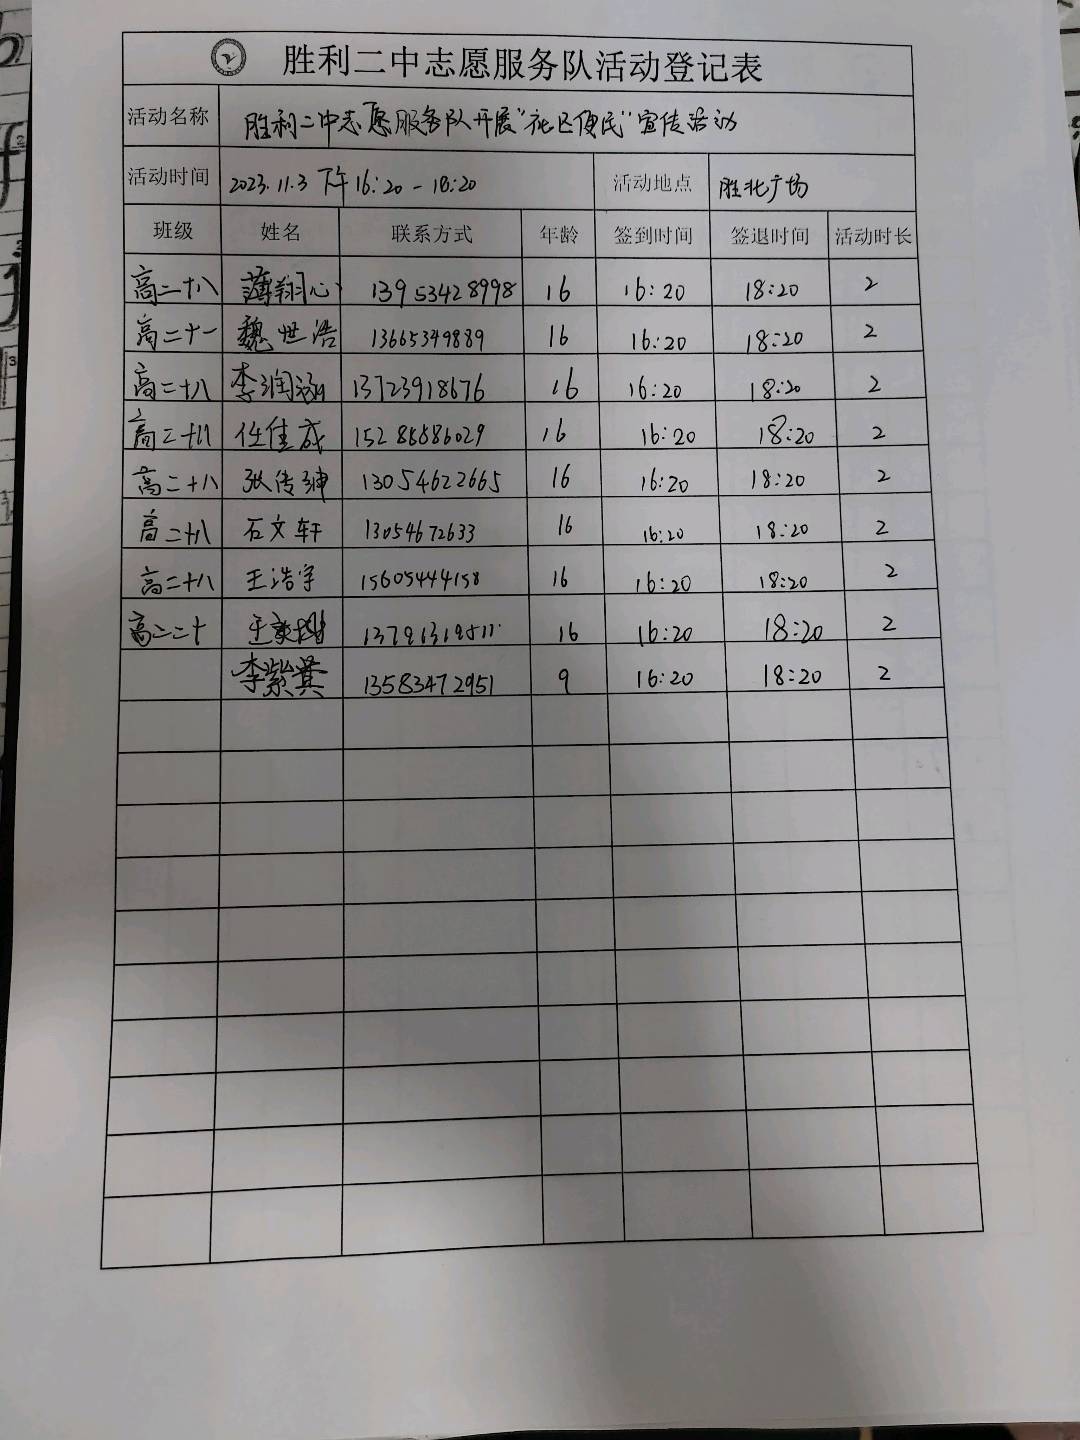 胜利二中志愿服务队活动登记表
活动名称 胜利二中志愿服务队开展"社区便民"宣传活动
活动时间 2023.11.3 下午16:20-18:20 活动地点 胜北广场
班级 姓名 联系方式 年龄 签到时间 签退时间 活动时长
高二十八 薄翔心 13953428998 16 16:20 18:20 2
高二十一 魏世浩 13665349889 16 16:20 18:20 2
高二十八 李润涵 13723918676 16 16:20 18:20 2
高二十八 任佳成 16 16:20 18:20 2
高二十八 张传珅 13054622665 16 16:20 18:20 2
高二十八 石文轩 13054672633 16 16:20 18:20 2
高二十八 王浩宇 15605444158 16 16:20 18:20 2
高二二十 16 16:20 18:20 2
李紫萁 13583472951 9 16:20 18:20 2